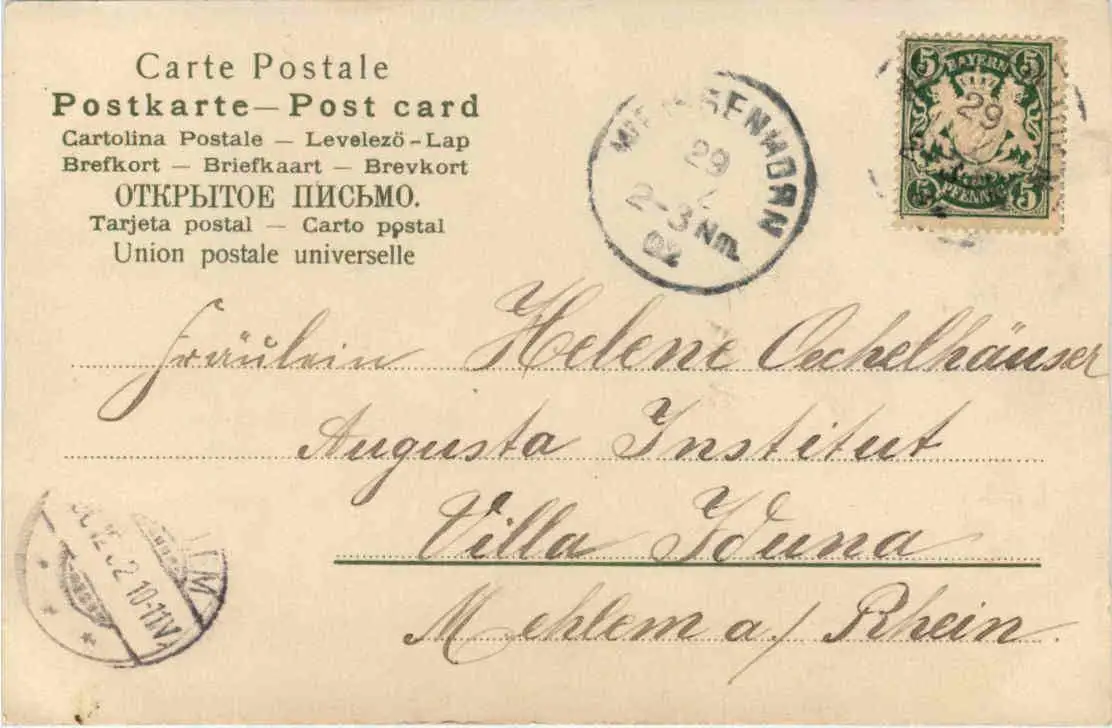 Carte Postale
Postkarte — Post card
Cartolina Postale — Levelező-Lap
Brefkort — Briefkaart — Brevkort
ОТКРЫТОЕ ПИСЬМО.
Tarjeta postal — Carto postal
Union postale universelle
29
2-3 Nm.
02
5 5
BAYERN
29
5 PFENNIG 5
Fräulein Helene Oechelhäuser
Augusta Institut
Villa Iduna
Mehlem a/ Rhein.
10-11V